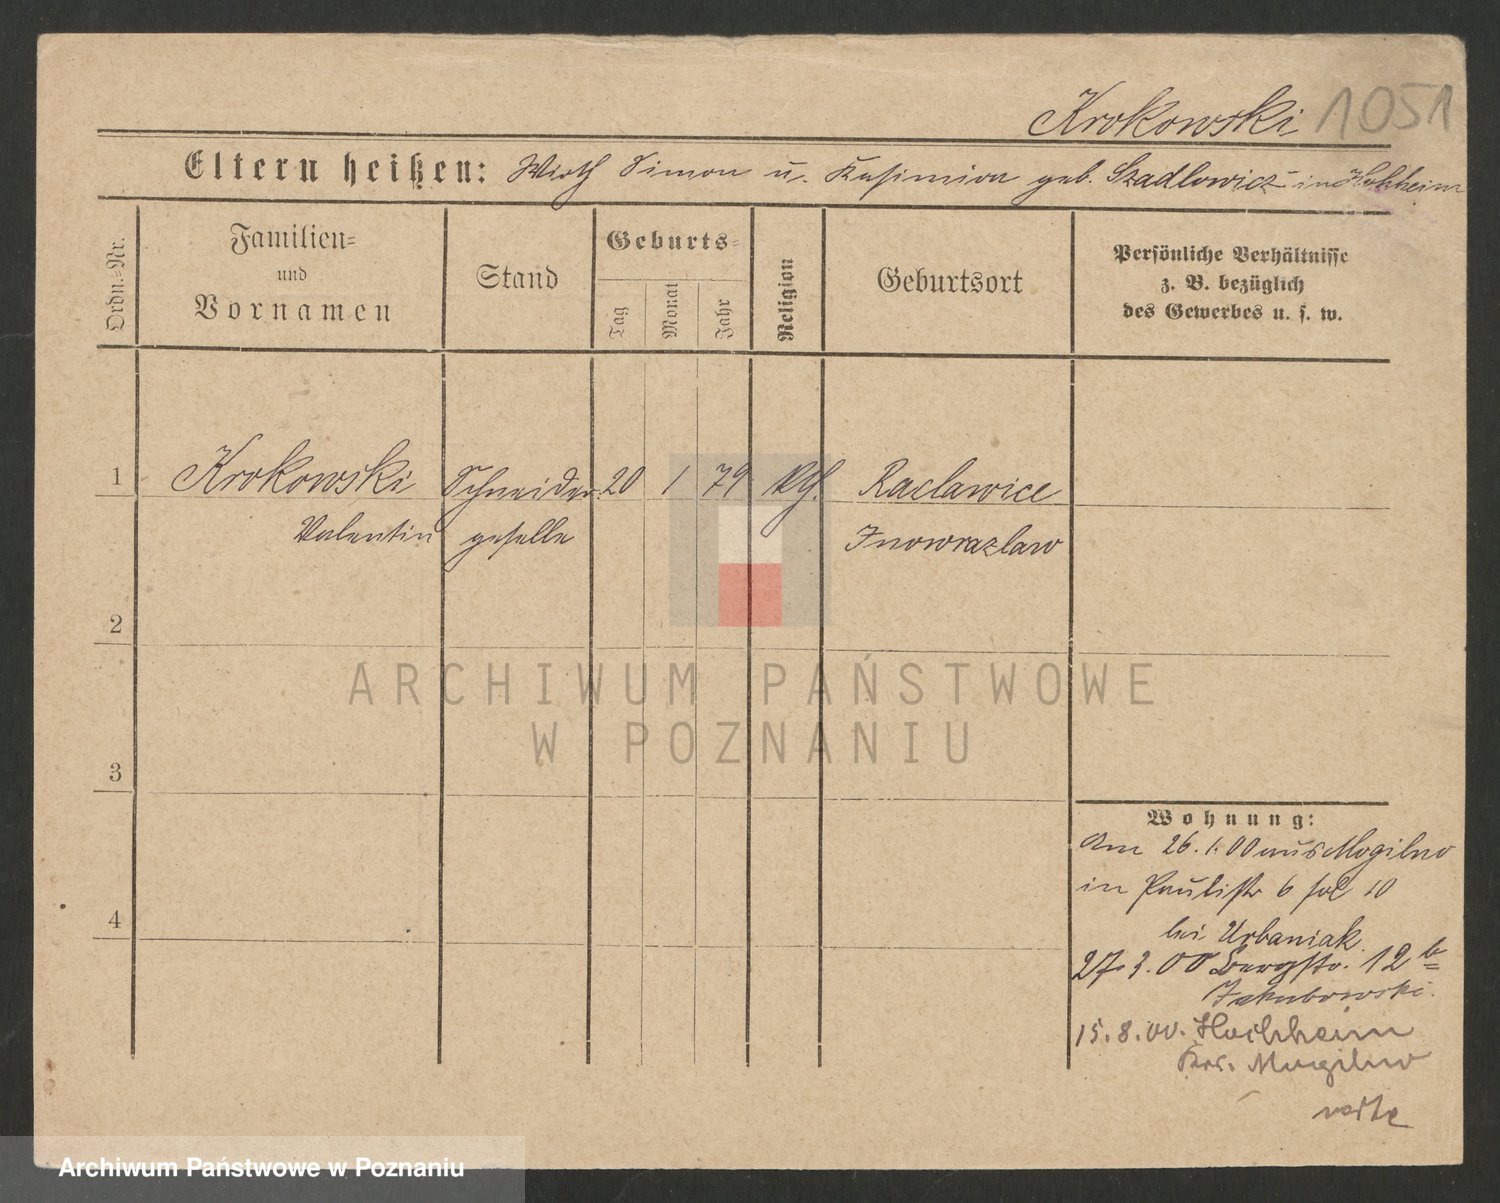 Krokowski 1051
Eltern heißen: Wirth Simon u. Kasimira geb. Szadlowicz in Hochheim
Ordn.-Nr.
Familien-
und
Vornamen
Stand
Geburts-
Tag
Monat
Jahr
Religion
Geburtsort
Persönliche Verhältnisse
z. B. bezüglich
des Gewerbes u. s. w.
1 Krokowski Schneider 20 1 79 kth. Raclawice
Valentin geselle Inowrazlaw
2
ARCHIWUM PAŃSTWOWE
W POZNANIU
3
Wohnung:
Am 26.1.00 aus Mogilno
in Paulistr 6 10
4
bei Urbaniak
27.3.00 Bergstr. 12 b
Jakubowski.
15.8.00. Hochheim
Krs. Mogilno
Archiwum Państwowe w Poznaniu